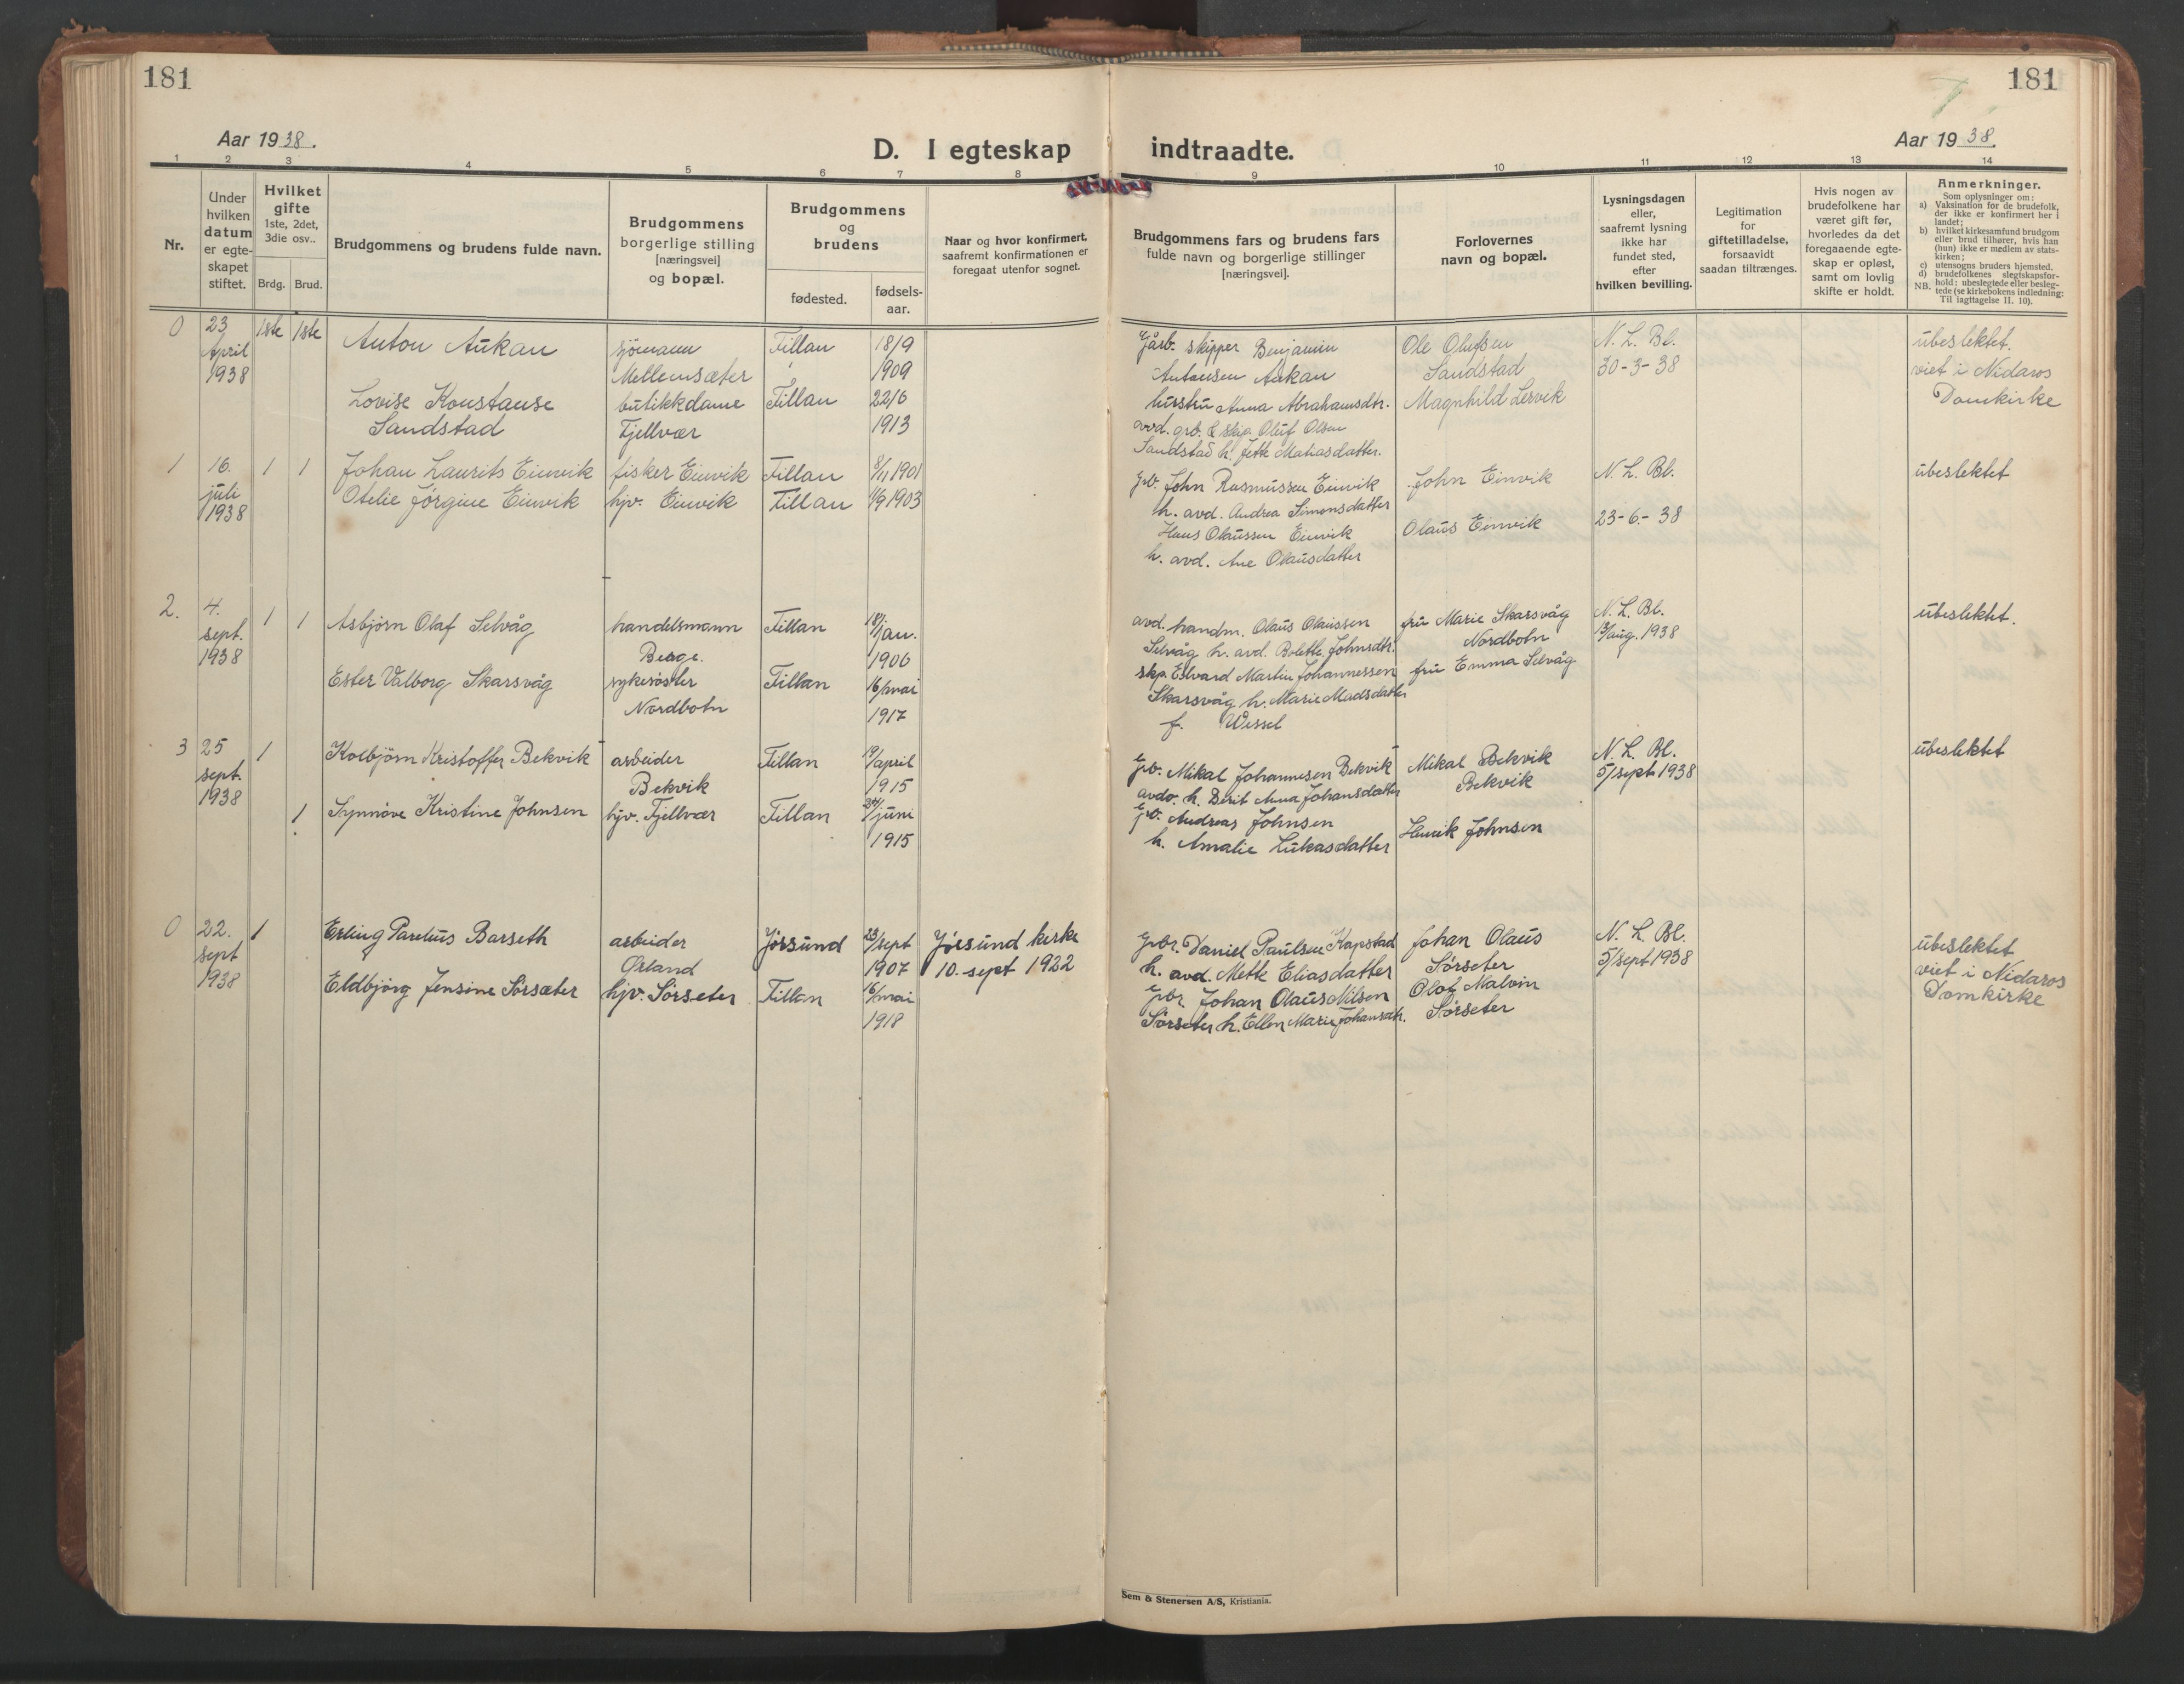 181
181
Aar 1938.
D. I egteskap indtraadte.
Aar 1938.
1 2 3 4 5 6 7 8 9 10 11 12 13 14
Nr.
Under
hvilken
datum
er egte-
skapet
stiftet.
Hvilket
gifte
1ste, 2det,
3die osv..
Brdg. Brud.
Brudgommens og brudens fulde navn.
Brudgommens
borgerlige stilling
[næringsvei]
og bopæl.
Brudgommens
og
brudens
fødested.
fødsels-
aar.
Naar og hvor konfirmert,
saafremt konfirmationen er
foregaat utenfor sognet.
Brudgommens fars og brudens fars
fulde navn og borgerlige stillinger
[næringsvei].
Forlovernes
navn og bopæl.
Lysningsdagen
eller,
saafremt lysning
ikke har
fundet sted,
efter
hvilken bevilling.
Legitimation
for
giftetilladelse,
forsaavidt
saadan tiltrænges.
Hvis nogen av
brudefolkene har
været gift før,
hvorledes da det
foregaaende egte-
skap er opløst,
samt om lovlig
skifte er holdt.
Anmerkninger.
Som oplysninger om:
a) Vaksination for de brudefolk,
der ikke er konfirmert her i
landet;
b) hvilket kirkesamfund brudgom
eller brud tilhører, hvis han
(hun) ikke er medlem av stats-
kirken;
c) utensogns bruders hjemsted.
d) brudefolkenes slegtskapsfor-
hold: ubeslegtede eller besleg-
NB. tede (se kirkebokens indledning:
Til iagttagelse II. 10).
0
23
April
1938
1ste 1ste
Anton Aukan
Lovise Konstanse
Sandstad
sjömann
Mellemsæter
butikkdame
Fjellvær
Fillan
Fillan
18/9
1909
22/6
1913
Gårb. skipper Benjamin
Antonsen Aukan
hustru Anna Abrahamsdtr.
avd. grb. & skip. Oluf Olsen
Sandstad h. Jette Matiasdatter.
Ole Olufsen
Sandstad
Magnhild Lervik
N. L. Bl.
30-3-38
ubeslektet.
viet i Nidaros
Domkirke
1
16.
juli
1938
1 1
Johan Laurits Einvik
Otelie Jørgine Einvik
fisker Einvik
hjv. Einvik
Fillan
Fillan
8/11 1901
1/9 1903
grb. John Rasmussen Einvik
h. avd. Andrea Simonsdatter
Hans Olaussen Einvik
h. avd. Ane Olausdatter
John Einvik
Olaus Einvik
N. L. Bl.
23-6-38
ubeslektet
2.
4.
sept.
1938
1 1
Asbjørn Olaf Selvåg
Ester Valborg Skarsvåg
handelsmann
Berge.
sykesöster
Nordbotn
Fillan
Fillan
18/jan.
1906
16/mai
1917
avd. handm. Olaus Olaussen
Selvåg h. avd. Bolette Johnsdtr.
skp. Edvard Martin Johannessen
Skarsvåg h. Marie Madsdatter
f. Wessel
fru Marie Skarsvåg
Nordbotn
fru Emma Selvåg
N. L. Bl.
13/aug. 1938
ubeslektet.
3
25
sept.
1938
1
1
Kolbjörn Kristoffer Bekvik
Synnöve Kristine Johnsen
arbeider
Bekvik
hjv. Fjellvær
Fillan
Fillan
19/april
1915
24/juni
1915
grb. Mikal Johannesen Bekvik
avdø. h. Berit Anna Johansdatter
grb. Andreas Johnsen
h. Amalie Lukasdatter
Mikal Bekvik
Bekvik
Henrik Johnsen
N. L. Bl.
5/sept 1938
ubeslektet
0
22.
sept
1938
1
Erling Parelius Barseth
Eldbjörg Jensine Sörsæter
arbeider
Ørland
hjv. Sörseter
Jössund
Fillan
23/sept
1907
16/mai
1918
Jössund kirke
10. sept 1922
gbr. Daniel Paulsen Kopstad
h. avd. Mette Eliasdatter
gbr. Johan Olaus Nilsen
Sörseter h. Ellen Marie Johansdtr.
Johan Olaus
Sörseter
Olof Malvin
Sörseter
N. L. Bl.
5/sept 1938
ubeslektet
viet i Nidaros
Domkirke
Sem & Stenersen A/S, Kristiania.